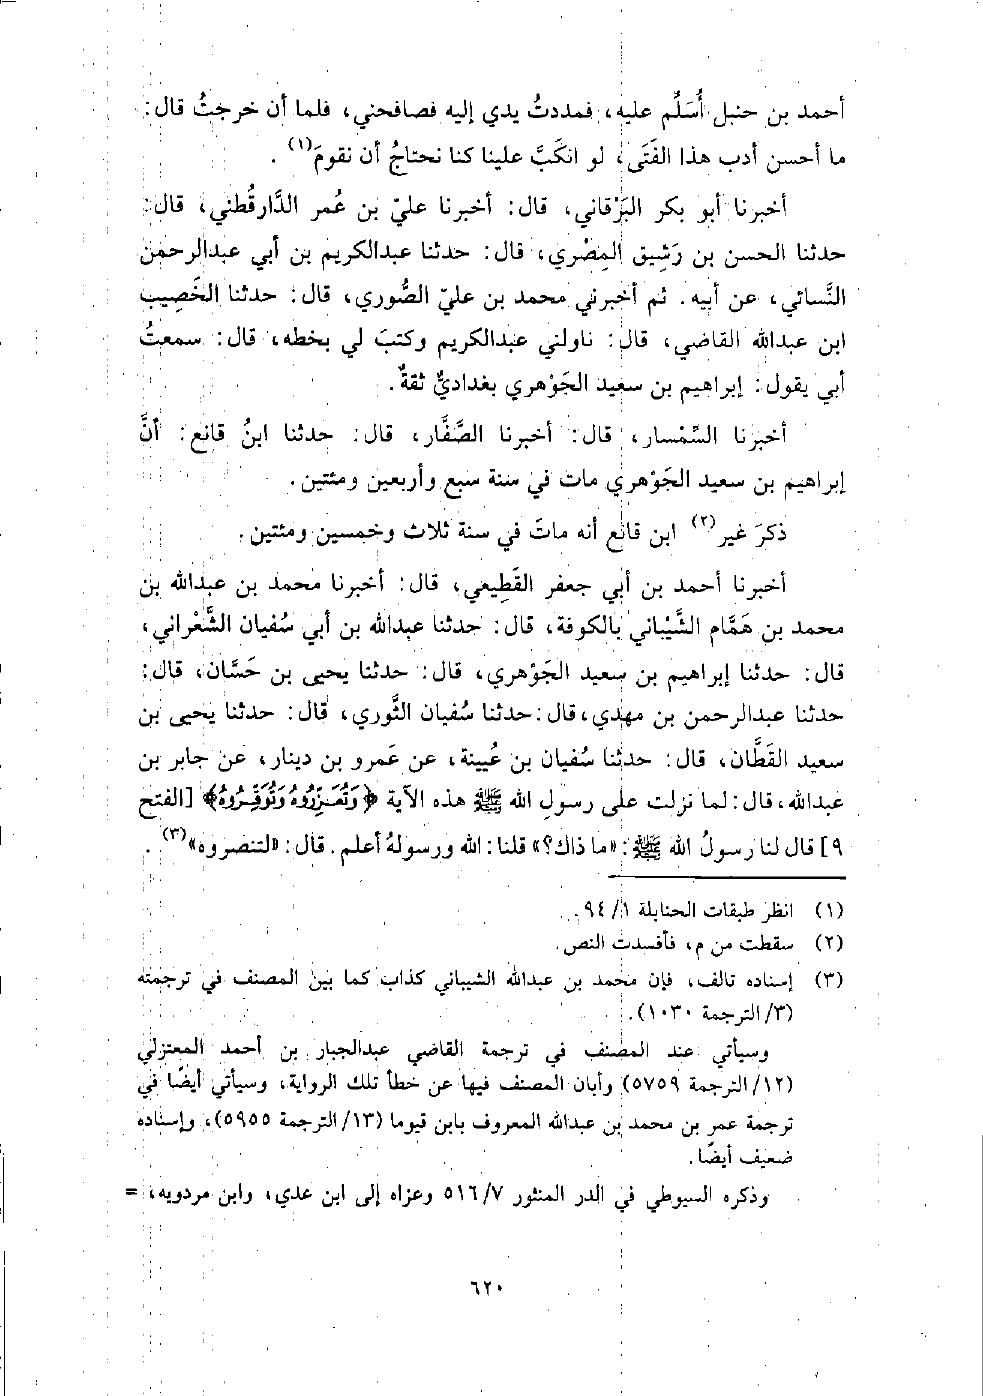 أحمد بن حنبل أُسَلِّم عليه، فمددتُ يدي إليه فصافحني، فلما أن خرجتُ قال:
ما أحسن أدب هذا الفَتَى، لو انكَبَّ علينا كنا نحتاجُ أن نقومَ(١).
أخبرنا أبو بكر البَرْقاني، قال: أخبرنا عليّ بن عُمر الدَّارقُطني، قال:
حدثنا الحسن بن رَشِيق المِصْري، قال: حدثنا عبدالكريم بن أبي عبدالرحمن
النَّسائي، عن أبيه. ثم أخبرني محمد بن عليّ الصُّوري، قال: حدثنا الخَصِيب
ابن عبدالله القاضي، قال: ناولني عبدالكريم وكتبَ لي بخطه، قال: سمعتُ
أبي يقول: إبراهيم بن سعيد الجَوْهري بغداديٌّ ثقةٌ.
أخبرنا السِّمْسار، قال: أخبرنا الصَّفَّار، قال: حدثنا ابنُ قانع: أنَّ
إبراهيم بن سعيد الجَوْهري مات في سنة سبع وأربعين ومئتين.
ذكرَ غير(٢) ابن قانع أنه ماتَ في سنة ثلاث وخمسين ومئتين.
أخبرنا أحمد بن أبي جعفر القَطِيعي، قال: أخبرنا محمد بن عبدالله بن
محمد بن هَمَّام الشَّيْباني بالكوفة، قال: حدثنا عبدالله بن أبي سُفيان الشَّعْراني،
قال: حدثنا إبراهيم بن سعيد الجَوْهري، قال: حدثنا يحيى بن حَسَّان، قال:
حدثنا عبدالرحمن بن مهدي، قال: حدثنا سُفيان الثَّوري، قال: حدثنا يحيى بن
سعيد القَطَّان، قال: حدثنا سُفيان بن عُيينة، عن عَمرو بن دينار، عن جابر بن
عبدالله، قال: لما نزلت على رسولِ الله ﷺ هذه الآية ﴿وَتُعَزِّرُوهُ وَتُوَقِّرُوهُ﴾ [الفتح
٩] قال لنا رسولُ الله ﷺ: «ما ذاك؟» قلنا: الله ورسولهُ أعلم. قال: «لتنصروه»(٣).
(١) انظر طبقات الحنابلة ١/ ٩٤.
(٢) سقطت من م، فأفسدت النص.
(٣) إسناده تالف، فإن محمد بن عبدالله الشيباني كذاب كما بين المصنف في ترجمته
(٣/ الترجمة ١٠٣٠).
وسيأتي عند المصنف في ترجمة القاضي عبدالجبار بن أحمد المعتزلي
(١٢/ الترجمة ٥٧٥٩) وأبان المصنف فيها عن خطأ تلك الرواية، وسيأتي أيضًا في
ترجمة عمر بن محمد بن عبدالله المعروف بابن قيوما (١٣/ الترجمة ٥٩٥٥)، وإسناده
ضعيف أيضًا.
وذكره السيوطي في الدر المنثور ٥١٦/٧ وعزاه إلى ابن عدي، وابن مردويه، =
٦٢٠